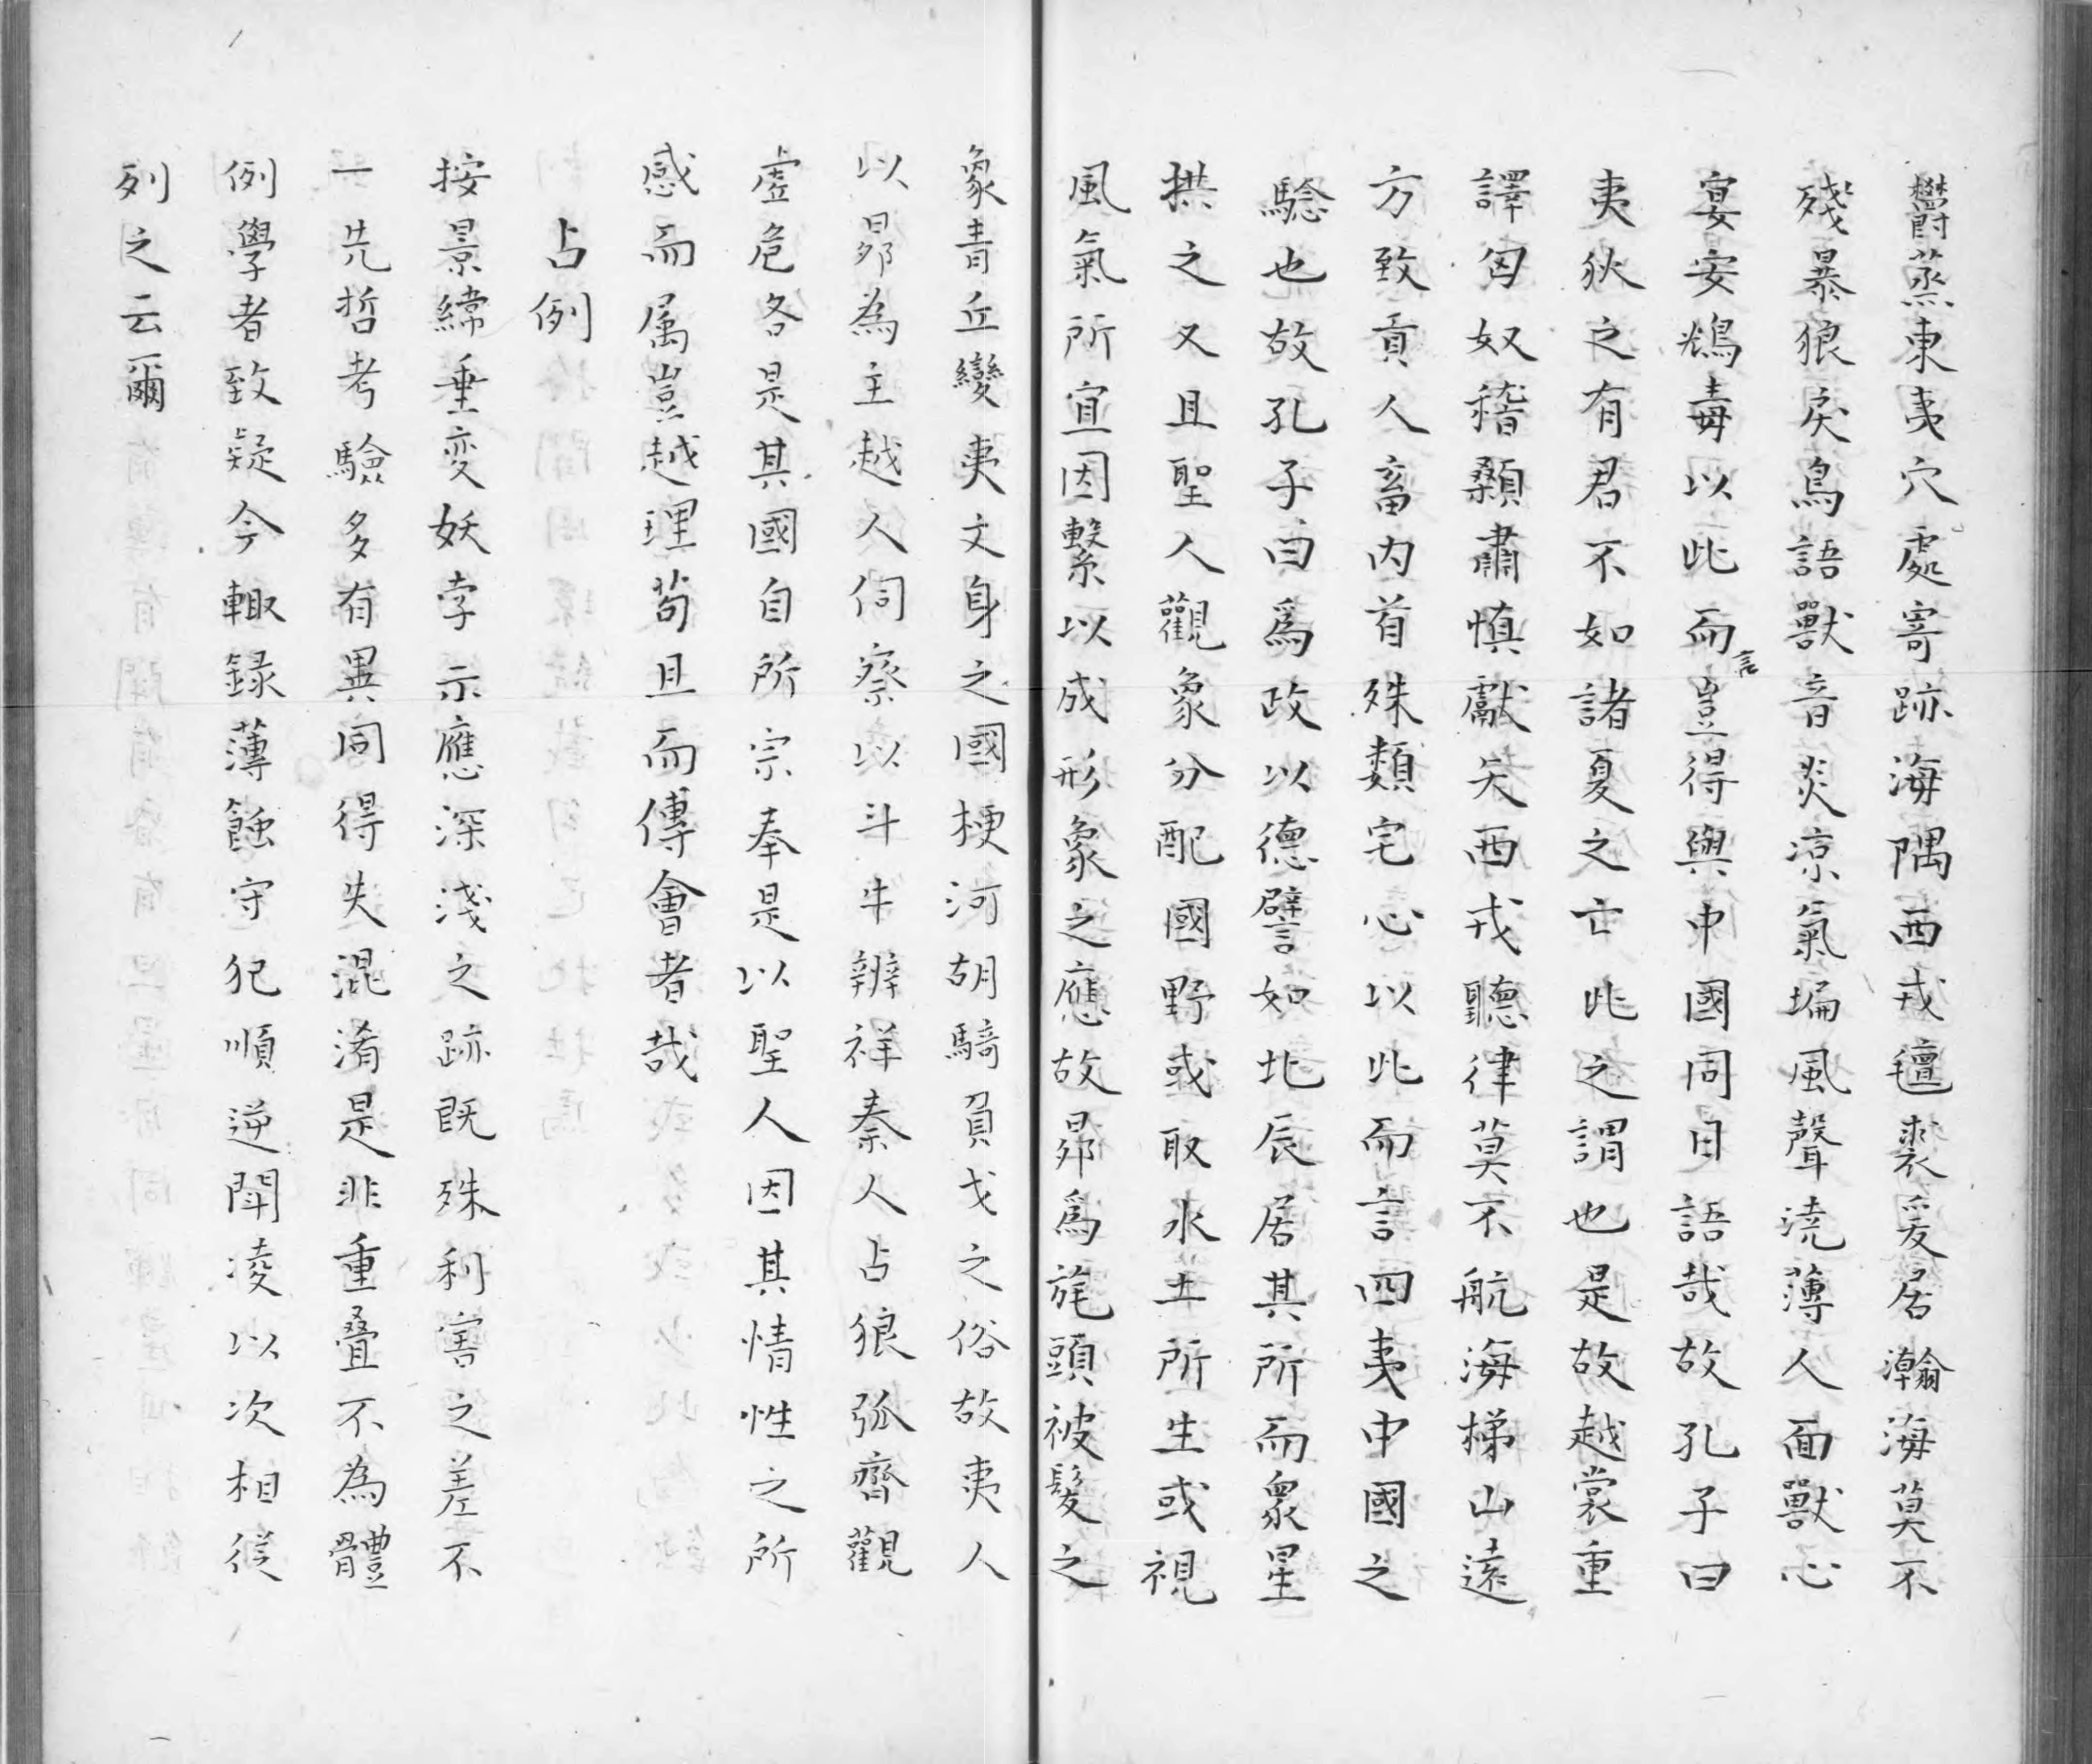 欝蒸東夷穴處寄跡海隅西戎氊裘爰居瀚海莫不
殘暴狼戾鳥語獸音炎凉氣埆風聲澆薄人面獸心
宴安鴆毒以此而言豈得與中國同日語哉故孔子曰
夷狄之有君不如諸夏之亡此之謂也是故越裳重
譯匈奴稽顙肅慎獻矢西戎聽律莫不航海梯山遠
方致貢人畜内首殊類宅心以此而言四夷中國之
騐也故孔子曰爲政以德譬如北辰居其所而衆星
拱之又且聖人觀象分配國野或取水土所生或視
風氣所宜因繫以成形象之應故昴爲旄頭被髮之
象青丘變夷文身之國梗河胡騎負戈之俗故夷人
以昴為主越人伺察以斗牛辨祥秦人占狼弧齊觀
虛危各是其國自所宗奉是以聖人因其情性之所
感而属豈越理苟且而傳會者哉
占例
按景緯垂变妖孛示應深淺之跡既殊利害之差不
一先哲考驗多有異同得失混淆是非重疊不為體
例學者致疑今輙録薄蝕守犯順逆鬭凌以次相從
列之云爾